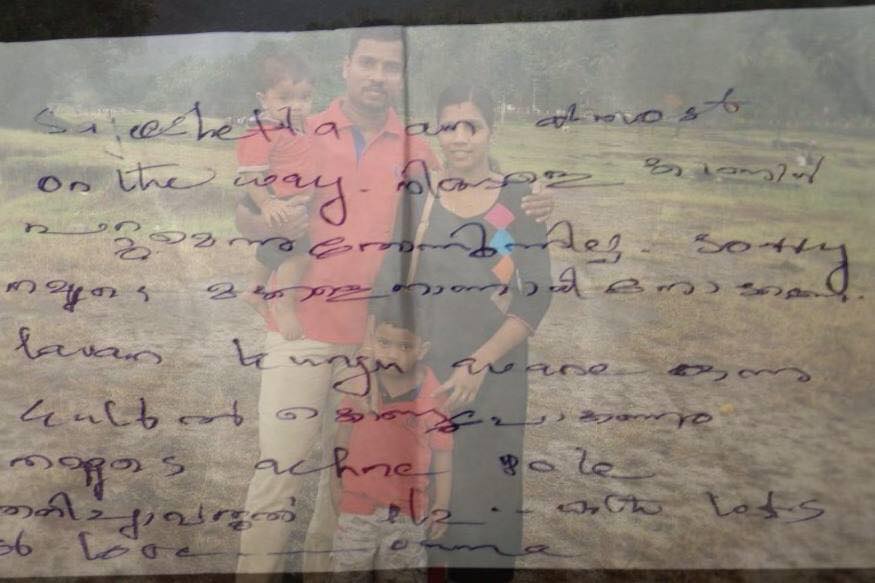 Sajeeshetta am almost
on the way. നിങ്ങളെ കാണാൻ
പറ്റുമെന്നു തോന്നുന്നില്ല. Sorry
നമ്മുടെ മക്കളെ നന്നായി നോക്കണേ.
lavan kunju avane ഒന്നു
Gulfൽ കൊണ്ടുപോകണം
നമ്മുടെ achne pole
തനിച്ചാവരുത് plz.. with lots
of love umma